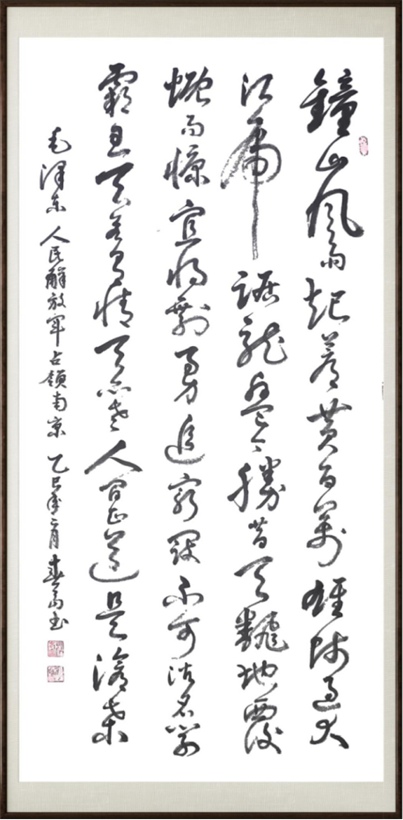 鐘山风雨起蒼黄百萬雄师過大
江虎踞龍盘今勝昔天飜地覆
慨而慷宜将剩勇追窮寇不可沽名学
霸王天若有情天亦老人间正道是滄桑
毛澤东人民解放軍占領南京乙巳年二月春